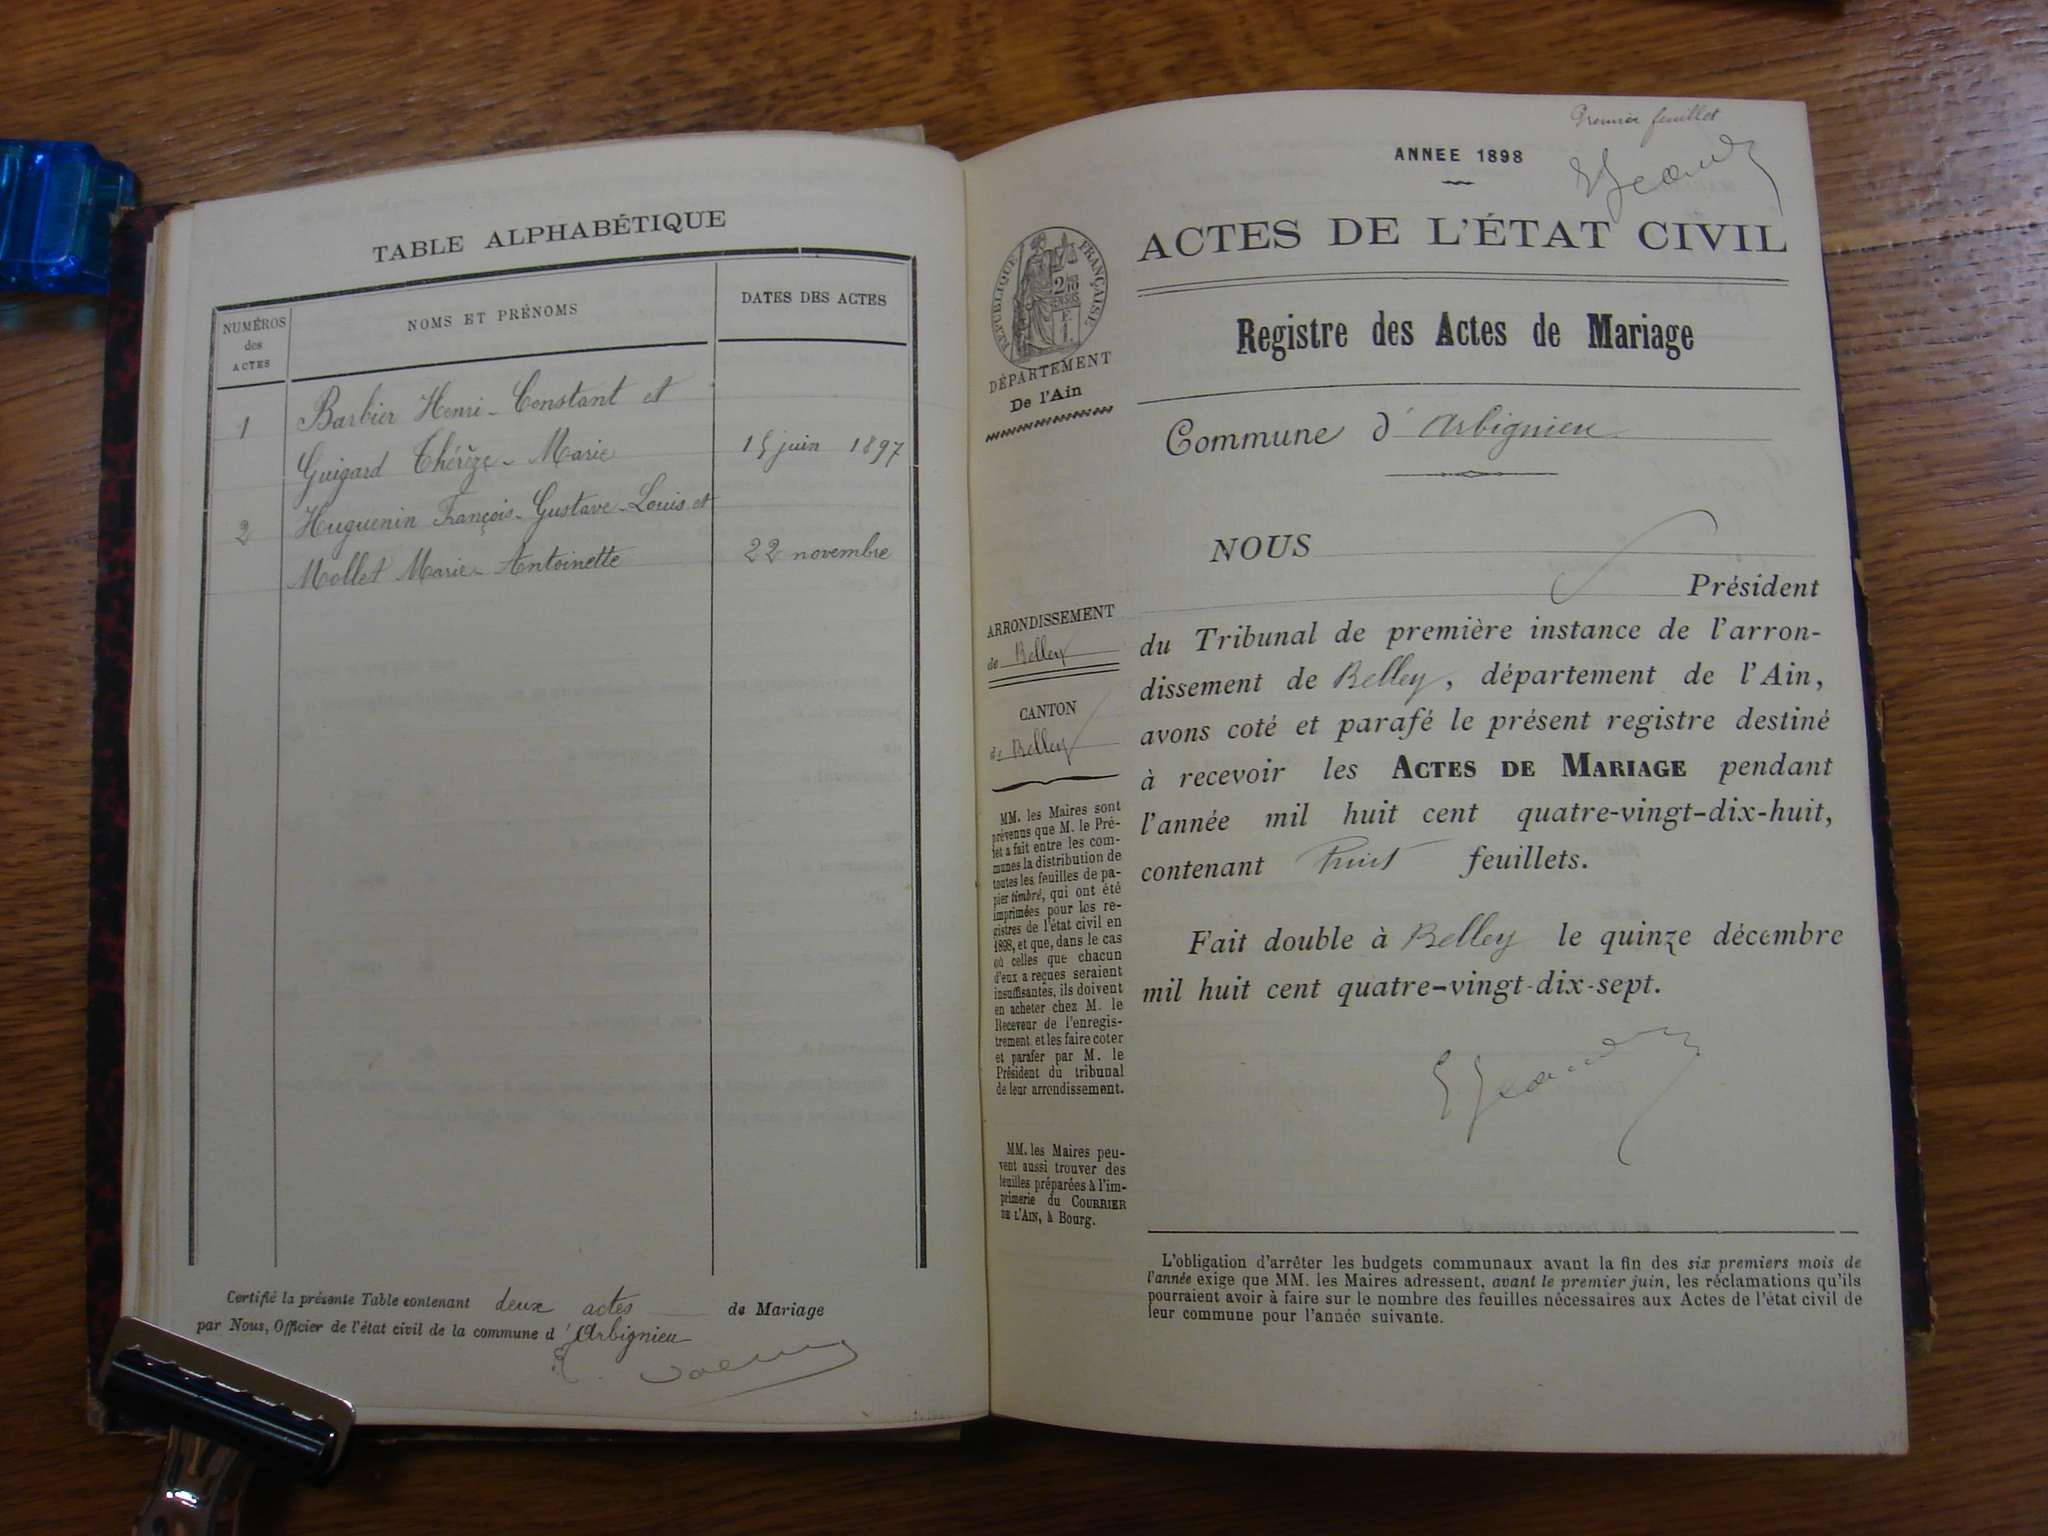 TABLE ALPHABÉTIQUE
NUMÉROS
des
ACTES
NOMS ET PRÉNOMS
DATES DES ACTES
1
Barbier Henri-Constant et
Guigard Thérèze-Marie
15 juin 1897
2
Huguenin François-Gustave-Louis et
Mollet Marie-Antoinette
22 novembre
Certifié la présente Table contenant deux actes de Mariage
par Nous, Officier de l'état civil de la commune d'Arbignieu
Premier feuillet
ANNEE 1898
ACTES DE L'ÉTAT CIVIL
RÉPUBLIQUE FRANÇAISE
2/10
EN SUS
DÉPARTEMENT
De l'Ain
Registre des Actes de Mariage
Commune d'Arbignieu
NOUS
Président
du Tribunal de première instance de l'arron-
dissement de Belley, département de l'Ain,
avons coté et parafé le présent registre destiné
à recevoir les ACTES DE MARIAGE pendant
l'année mil huit cent quatre-vingt-dix-huit,
contenant huit feuillets.
Fait double à Belley le quinze décembre
mil huit cent quatre-vingt-dix-sept.
ARRONDISSEMENT
de Belley
CANTON
de Belley
MM. les Maires sont
prévenus que M. le Pré-
fet a fait entre les com-
munes la distribution de
toutes les feuilles de pa-
pier timbré, qui ont été
imprimées pour les re-
gistres de l'état civil en
1898, et que, dans le cas
où celles que chacun
d'eux a reçues seraient
insuffisantes, ils doivent
en acheter chez M. le
Receveur de l'enregis-
trement, et les faire coter
et parafer par M. le
Président du tribunal
de leur arrondissement.
MM. les Maires peu-
vent aussi trouver des
feuilles préparées à l'im-
primerie du COURRIER
DE L'AIN, à Bourg.
L'obligation d'arrêter les budgets communaux avant la fin des six premiers mois de
l'année exige que MM. les Maires adressent, avant le premier juin, les réclamations qu'ils
pourraient avoir à faire sur le nombre des feuilles nécessaires aux Actes de l'état civil de
leur commune pour l'année suivante.